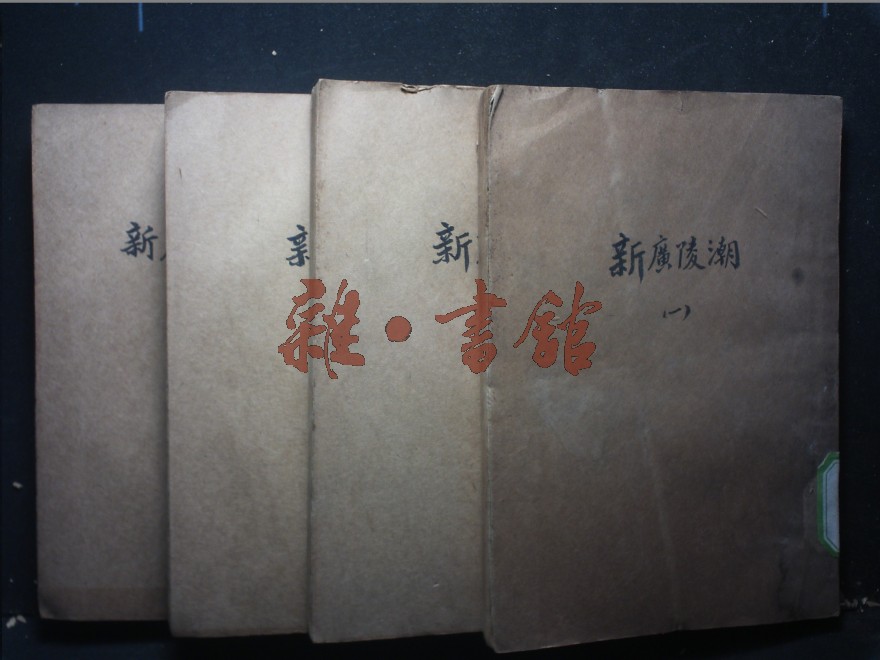 新
新
新
新廣陵潮
(一)
雜·書館